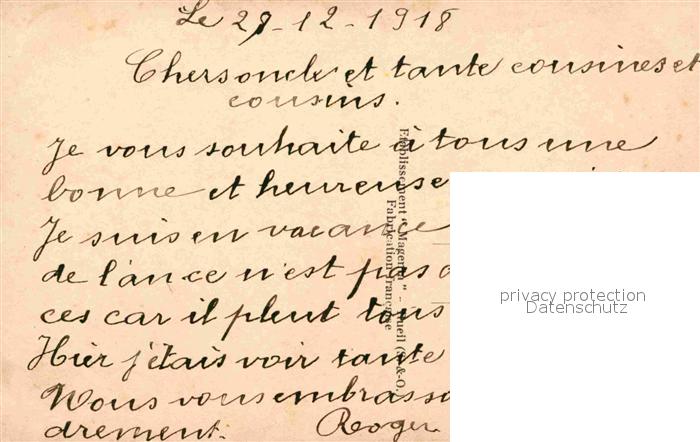 Le 29-12-1918
Chers oncle et tante cousines et
cousins.
Je vous souhaite à tous une
bonne et heureuse
Je suis en vacance
de lance n'est pas
ces car il pleut tous
Hier j'étais voir tante
Nous vous embrasso
drement. Roger
Etablissement "Magenta"
Fabrication Française
privacy protection
Datenschutz